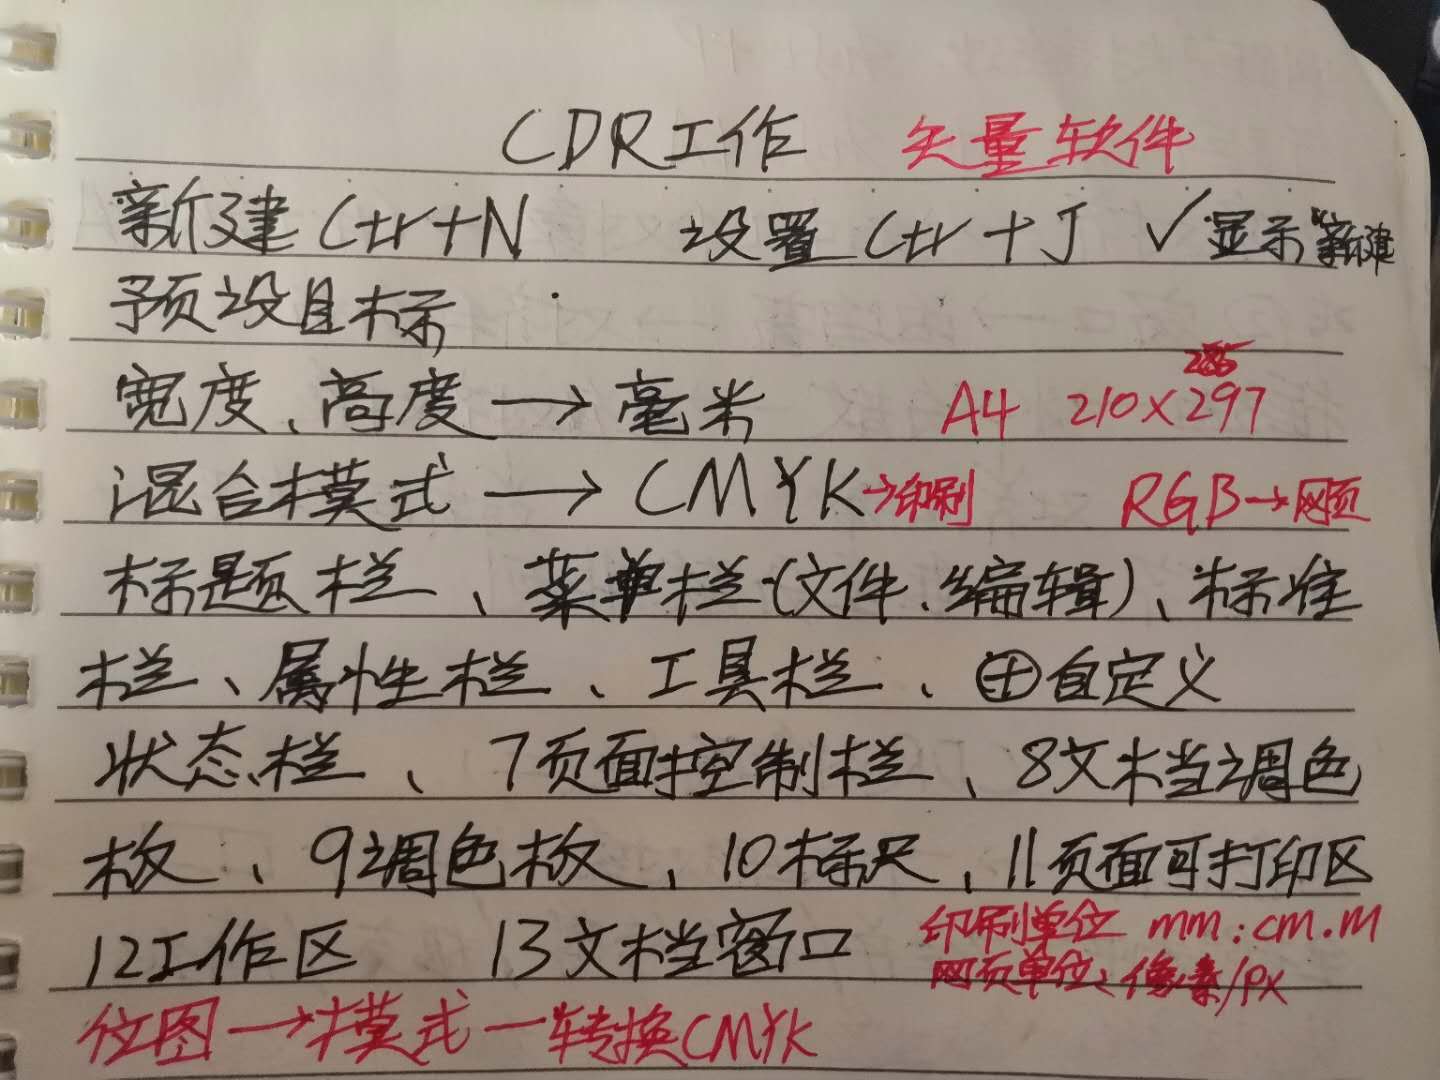 CDR工作 矢量软件
新建 Ctr+N 设置 Ctr+J ✓显示"新建
预设目标
285
宽度、高度→毫米 A4 210×297
混合模式→CMYK→印刷 RGB→网页
标题栏、菜单栏(文件、编辑)、标准
栏、属性栏、工具栏、⊕自定义
状态栏、7页面控制栏、8文档调色
板、9调色板、10标尺、11页面可打印区
12工作区 13文档窗口 印刷单位 mm:cm.M
网页单位、像素/px
位图→模式—转换CMYK